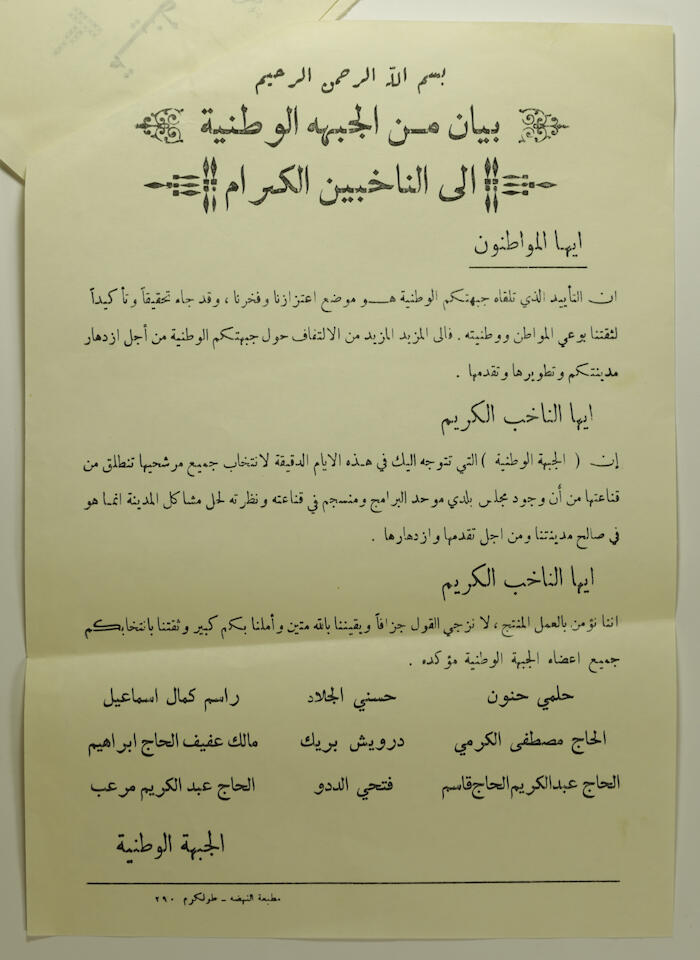 بسم الله الرحمن الرحيم
بيان من الجبهه الوطنية
الى الناخبين الكرام
ايها المواطنون
ان التأييد الذي تلقاه جبهتكم الوطنية هو موضع اعتزازنا وفخرنا ، وقد جاء تحقيقاً وتأكيداً
لثقتنا بوعي المواطن ووطنيته . فالى المزيد المزيد من الالتفاف حول جبهتكم الوطنية من أجل ازدهار
مدينتكم وتطويرها وتقدمها .
ايها الناخب الكريم
إن ( الجبهة الوطنية ) التي تتوجه اليك في هذه الايام الدقيقة لانتخاب جميع مرشحيها تنطلق من
قناعتها من أن وجود مجلس بلدي موحد البرامج ومنسجم في قناعته ونظرته لحل مشاكل المدينة انما هو
في صالح مدينتنا ومن اجل تقدمها وازدهارها .
ايها الناخب الكريم
اننا نؤمن بالعمل المنتج ، لا نزجي القول جزافاً ويقيننا بالله متين وأملنا بكم كبير وثقتنا بانتخابكم
جميع اعضاء الجبهة الوطنية مؤكده .
حلمي حنون حسني الجلاد راسم كمال اسماعيل
الحاج مصطفى الكرمي درويش بريك مالك عفيف الحاج ابراهيم
الحاج عبدالكريم الحاج قاسم فتحي الددو الحاج عبد الكريم مرعب
الجبهة الوطنية
مطبعة النهضه - طولكرم ٢٩٠